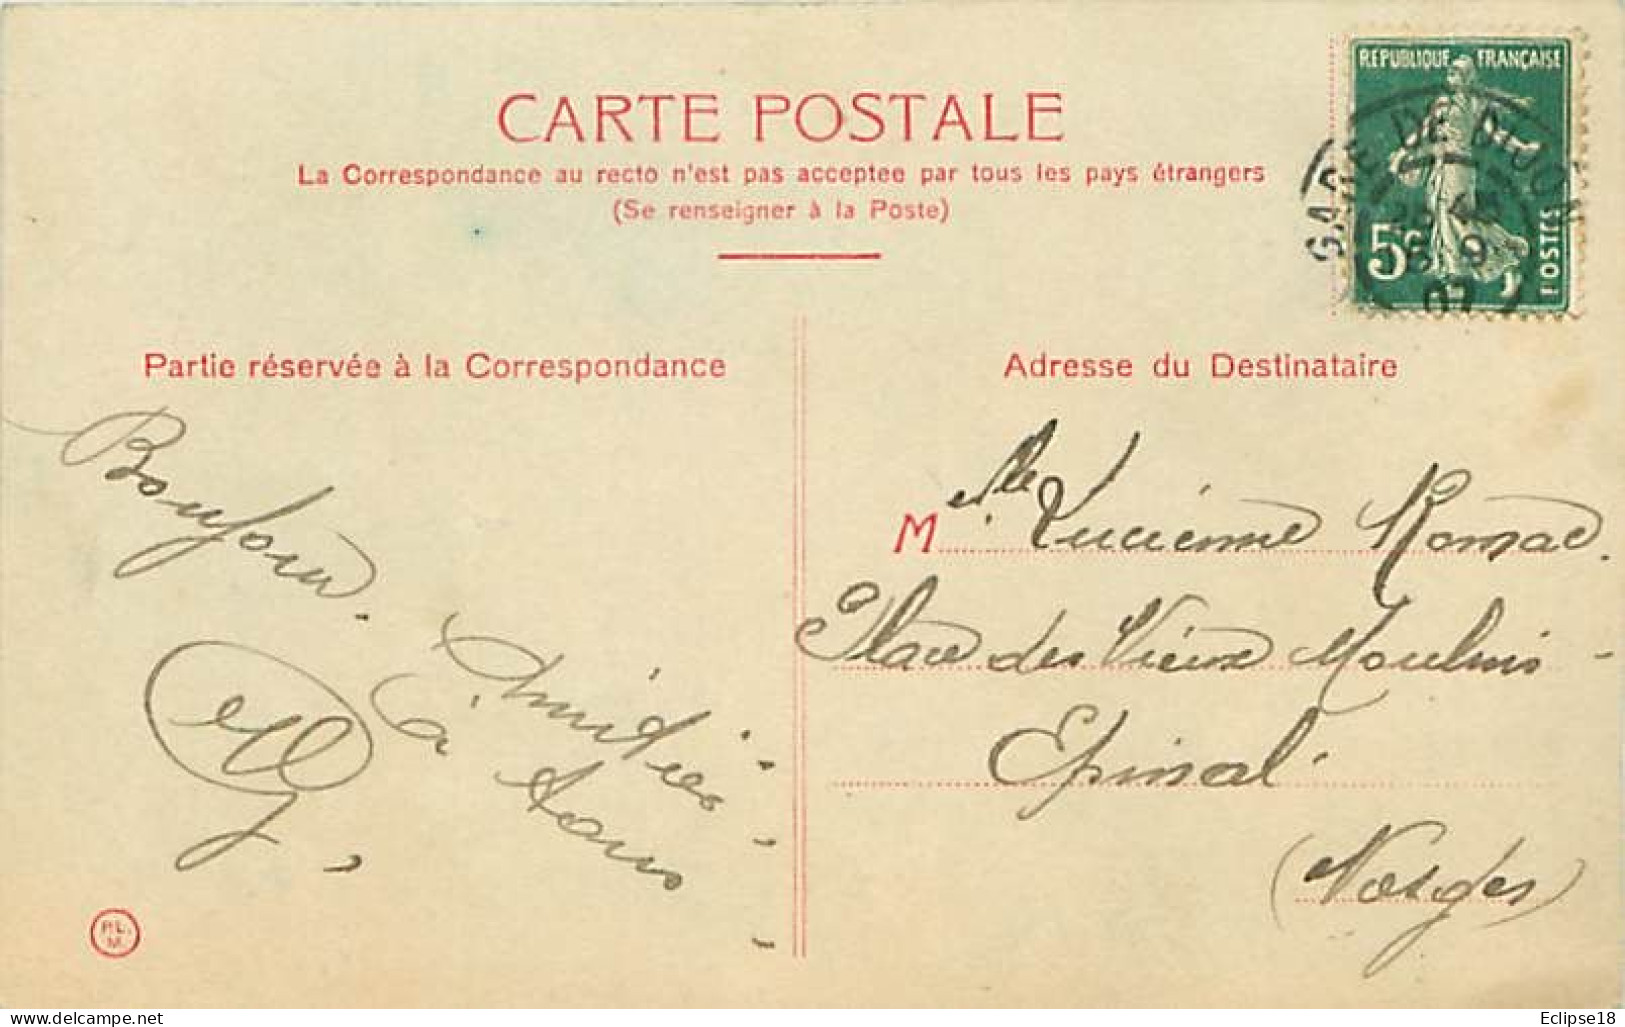 CARTE POSTALE
La Correspondance au recto n'est pas acceptee par tous les pays étrangers
(Se renseigner à la Poste)
REPUBLIQUE FRANÇAISE
5c POSTES
GARE DE DIJON
9
07
Partie réservée à la Correspondance
Bonjour.
Amitiés
à tous
P.L.
M.
Adresse du Destinataire
Melle Lucienne Romac.
Place des Vieux Moulins -
Epinal.
(Vosges)
delcampe.net
Eclipse18